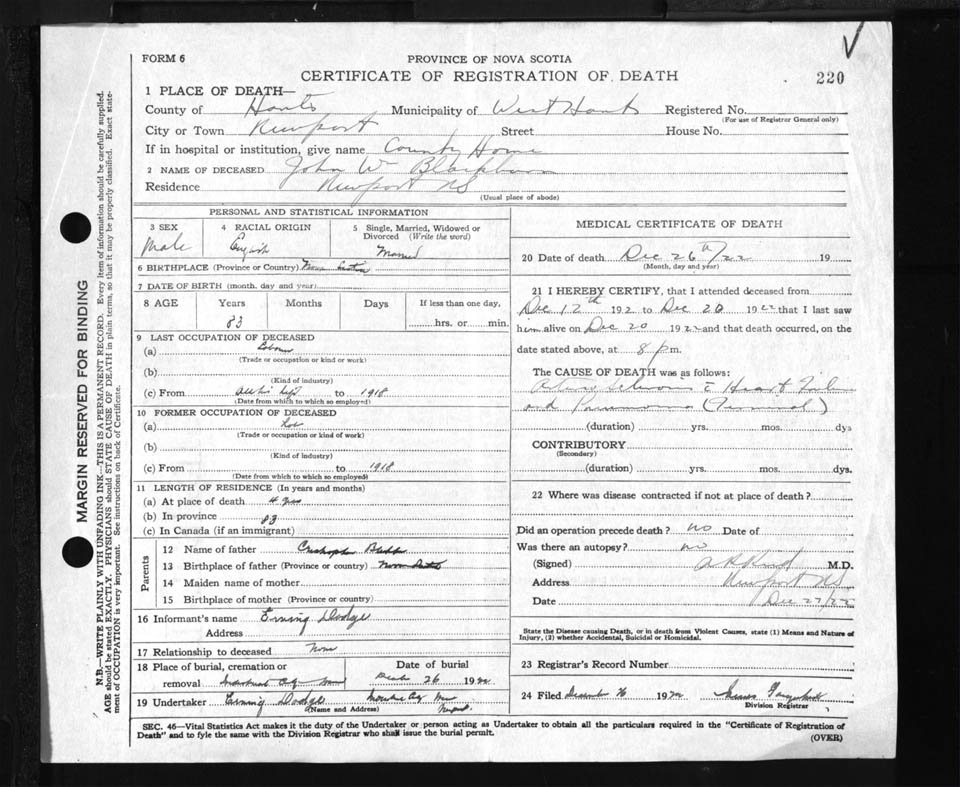 FORM 6
PROVINCE OF NOVA SCOTIA
CERTIFICATE OF REGISTRATION OF DEATH
220
1 PLACE OF DEATH—
County of Hants Municipality of West Hants Registered No.
(For use of Registrar General only)
City or Town Newport Street House No.
If in hospital or institution, give name County Home
2 NAME OF DECEASED John Wm Blackburn
Residence Newport NS
(Usual place of abode)
PERSONAL AND STATISTICAL INFORMATION
3 SEX 4 RACIAL ORIGIN 5 Single, Married, Widowed or
Divorced (Write the word)
Male English Married
6 BIRTHPLACE (Province or Country) Nova Scotia
7 DATE OF BIRTH (month, day and year)
8 AGE Years Months Days If less than one day,
83 hrs. or min.
9 LAST OCCUPATION OF DECEASED
(a)
(Trade or occupation or kind or work)
(b)
(Kind of industry)
(c) From to 1918
(Date from which to which so employed)
10 FORMER OCCUPATION OF DECEASED
(a)
(Trade or occupation or kind of work)
(b)
(Kind of industry)
(c) From to 1918
(Date from which to which so employed)
11 LENGTH OF RESIDENCE (In years and months)
(a) At place of death 4 yrs
(b) In province 83
(c) In Canada (if an immigrant)
Parents
12 Name of father Christopher
13 Birthplace of father (Province or country) Nova Scotia
14 Maiden name of mother
15 Birthplace of mother (Province or country)
16 Informant's name Dodge
Address
17 Relationship to deceased None
18 Place of burial, cremation or Date of burial
removal 26 1922
19 Undertaker Dodge
(Name and Address)
MEDICAL CERTIFICATE OF DEATH
20 Date of death Dec 26th/22 19
(Month, day and year)
21 I HEREBY CERTIFY, that I attended deceased from
Dec 12th 192 to Dec 20 1922 that I last saw
him alive on Dec 20 1922 and that death occurred, on the
date stated above, at 8 p m.
The CAUSE OF DEATH was as follows:
Heart Failure
and Pneumonia (Terminal)
(duration) yrs. mos. dys
CONTRIBUTORY
(Secondary)
(duration) yrs. mos. dys.
22 Where was disease contracted if not at place of death?
Did an operation precede death? no Date of
Was there an autopsy? no
(Signed) M.D.
Address Newport NS
Date Dec 27/22
State the Disease causing Death, or in death from Violent Causes, state (1) Means and Nature of
Injury, (2) whether Accidental, Suicidal or Homicidal.
23 Registrar's Record Number
24 Filed 1922 James
Division Registrar
SEC. 46—Vital Statistics Act makes it the duty of the Undertaker or person acting as Undertaker to obtain all the particulars required in the "Certificate of Registration of
Death" and to fyle the same with the Division Registrar who shall issue the burial permit.
(OVER)
MARGIN RESERVED FOR BINDING
N.B.—WRITE PLAINLY WITH UNFADING INK—THIS IS A PERMANENT RECORD. Every item of information should be carefully supplied.
AGE should be stated EXACTLY. PHYSICIANS should STATE CAUSE OF DEATH in plain terms, so that it may be properly classified. Exact state-
ment of OCCUPATION is very important. See instructions on back of Certificate.